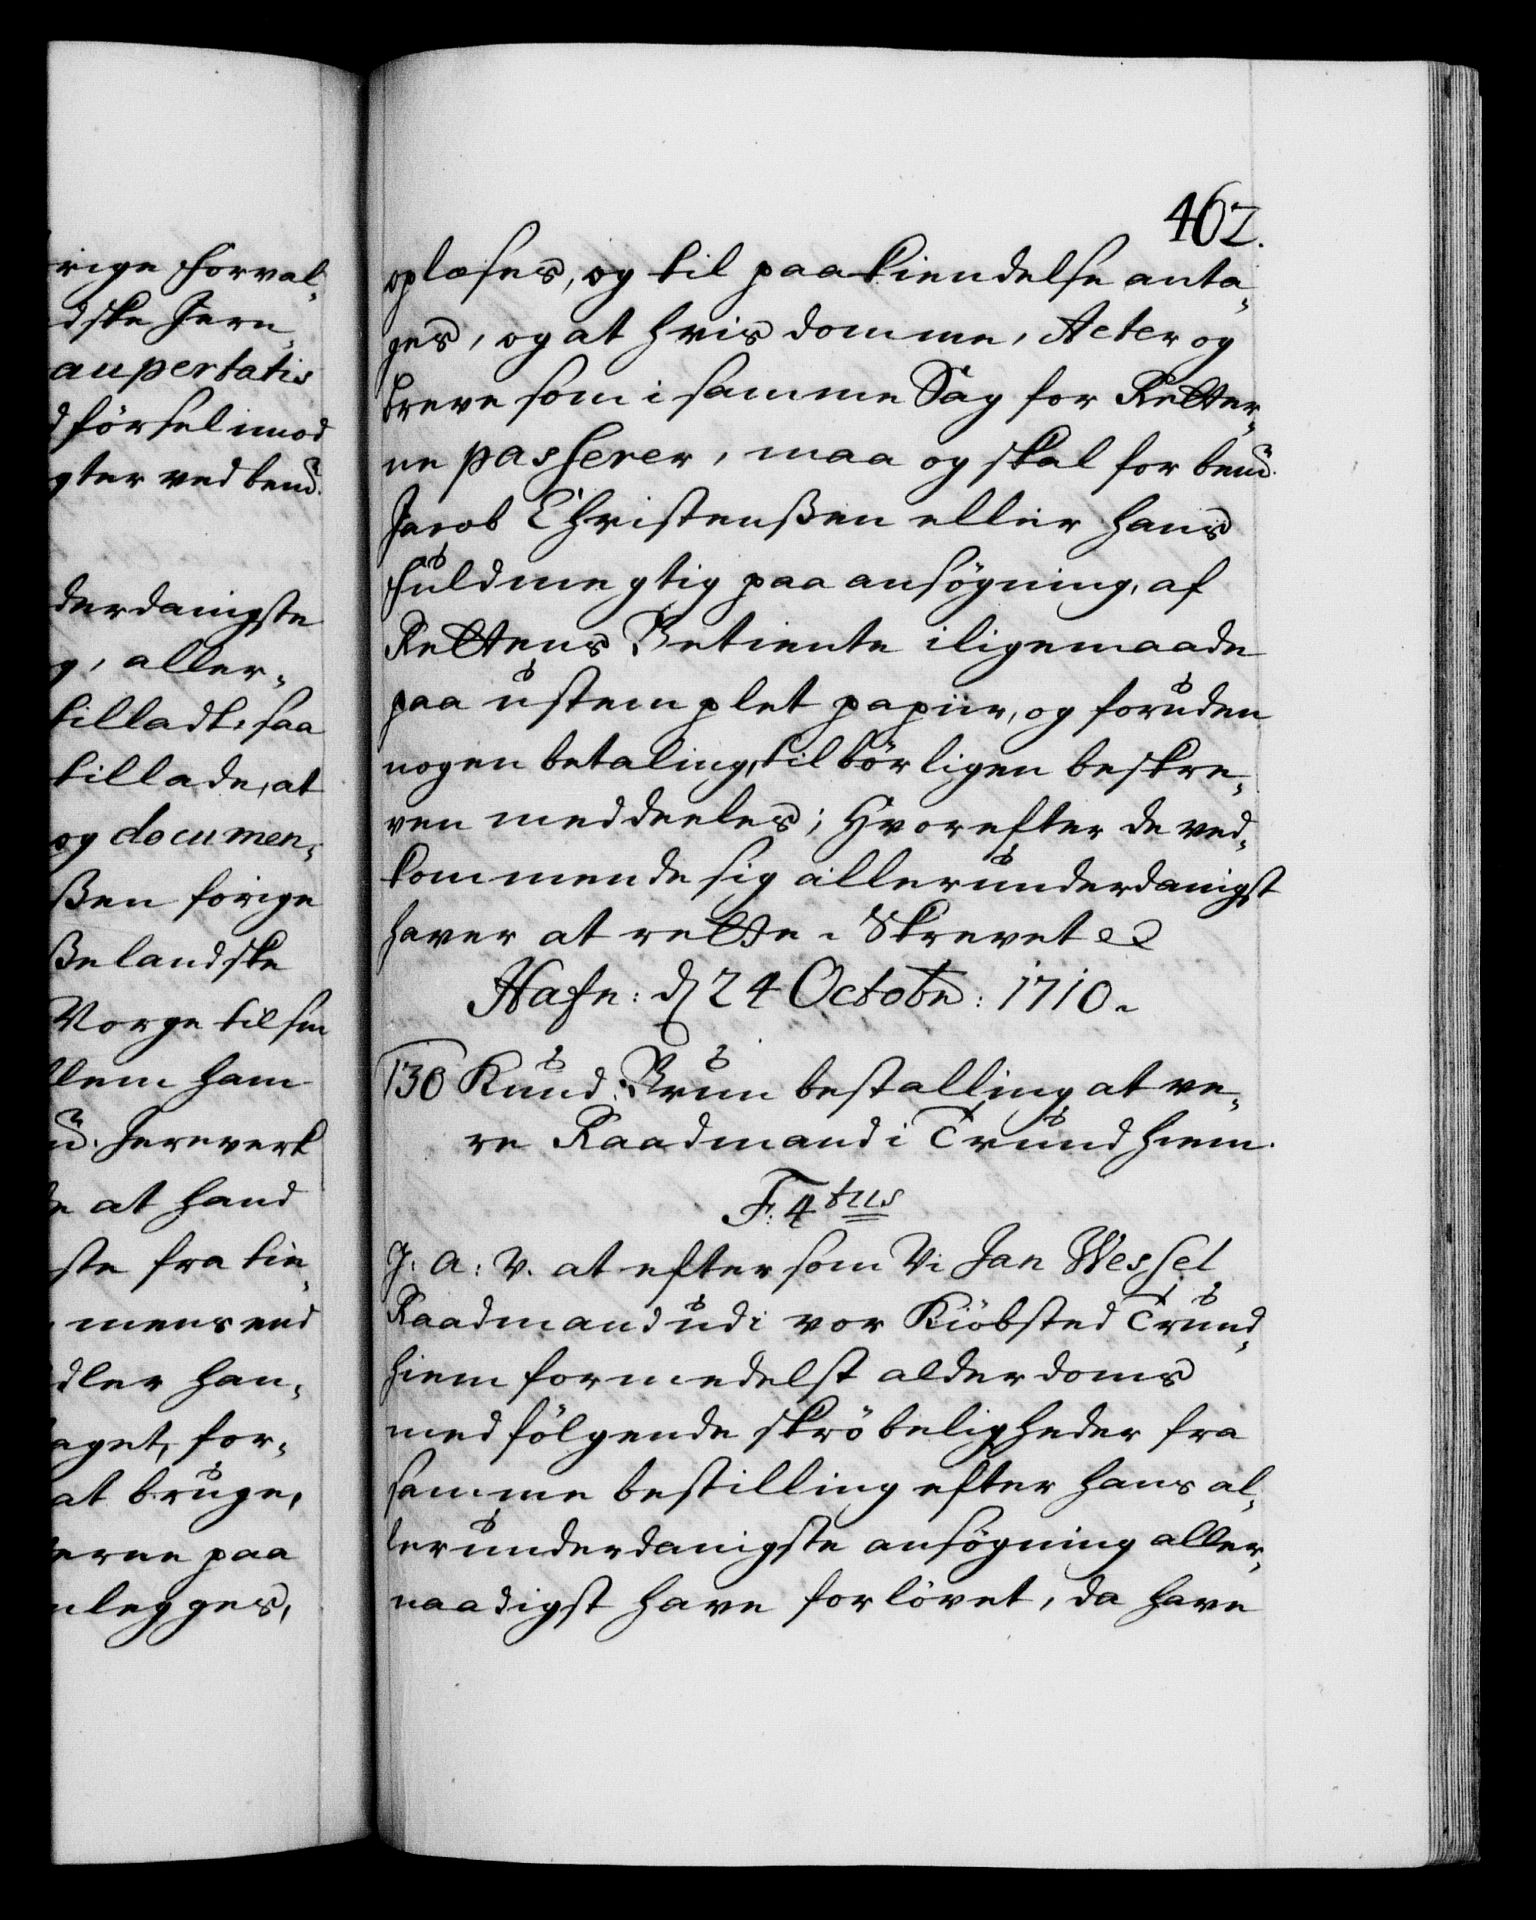 rige Forval-
dske Jern
aupertatis
dförsel imod
gter ved bemd.
derdanigste
g, aller-
tilladt, saa
tillade, at
og documen-
ßen forige
ßelandske
Norge til sin
lem ham
Jernverk
at hand
ste fra tie-
mens end
dler han-
aget, for-
at bruge,
erne paa
legges,
462.
oplæses, og til paakiendelse anta-
ges, og at hvis domme, Acter og
breve som i samme Sag for Retter-
ne passerer, maa og skal for bemd.
Jacob Christenßen eller hans
Fuldmegtig paa ansögning, af
Rettens Betiente iligemaade
paa ustemplet papiir, og foruden
nogen betaling, tilbörligen beskre-
ven meddeeles; Hvorefter de ved-
kommende sig allerunderdanigst
haver at rette. Skrevet
Hafn: d 24 Octobr: 1710.
130 Knud Brun bestalling at ve-
re Raadmand i Trundhiem.
F: 4tus
G: A: V. at eftersom Vi Jan Wessel
Raadmand udi vor Kiöbsted Trund-
hiem formedelst alderdoms
medfölgende skröbeligheder fra
samme bestilling efter hans al-
lerunderdanigste ansögning aller-
naadigst have forlövet, da have